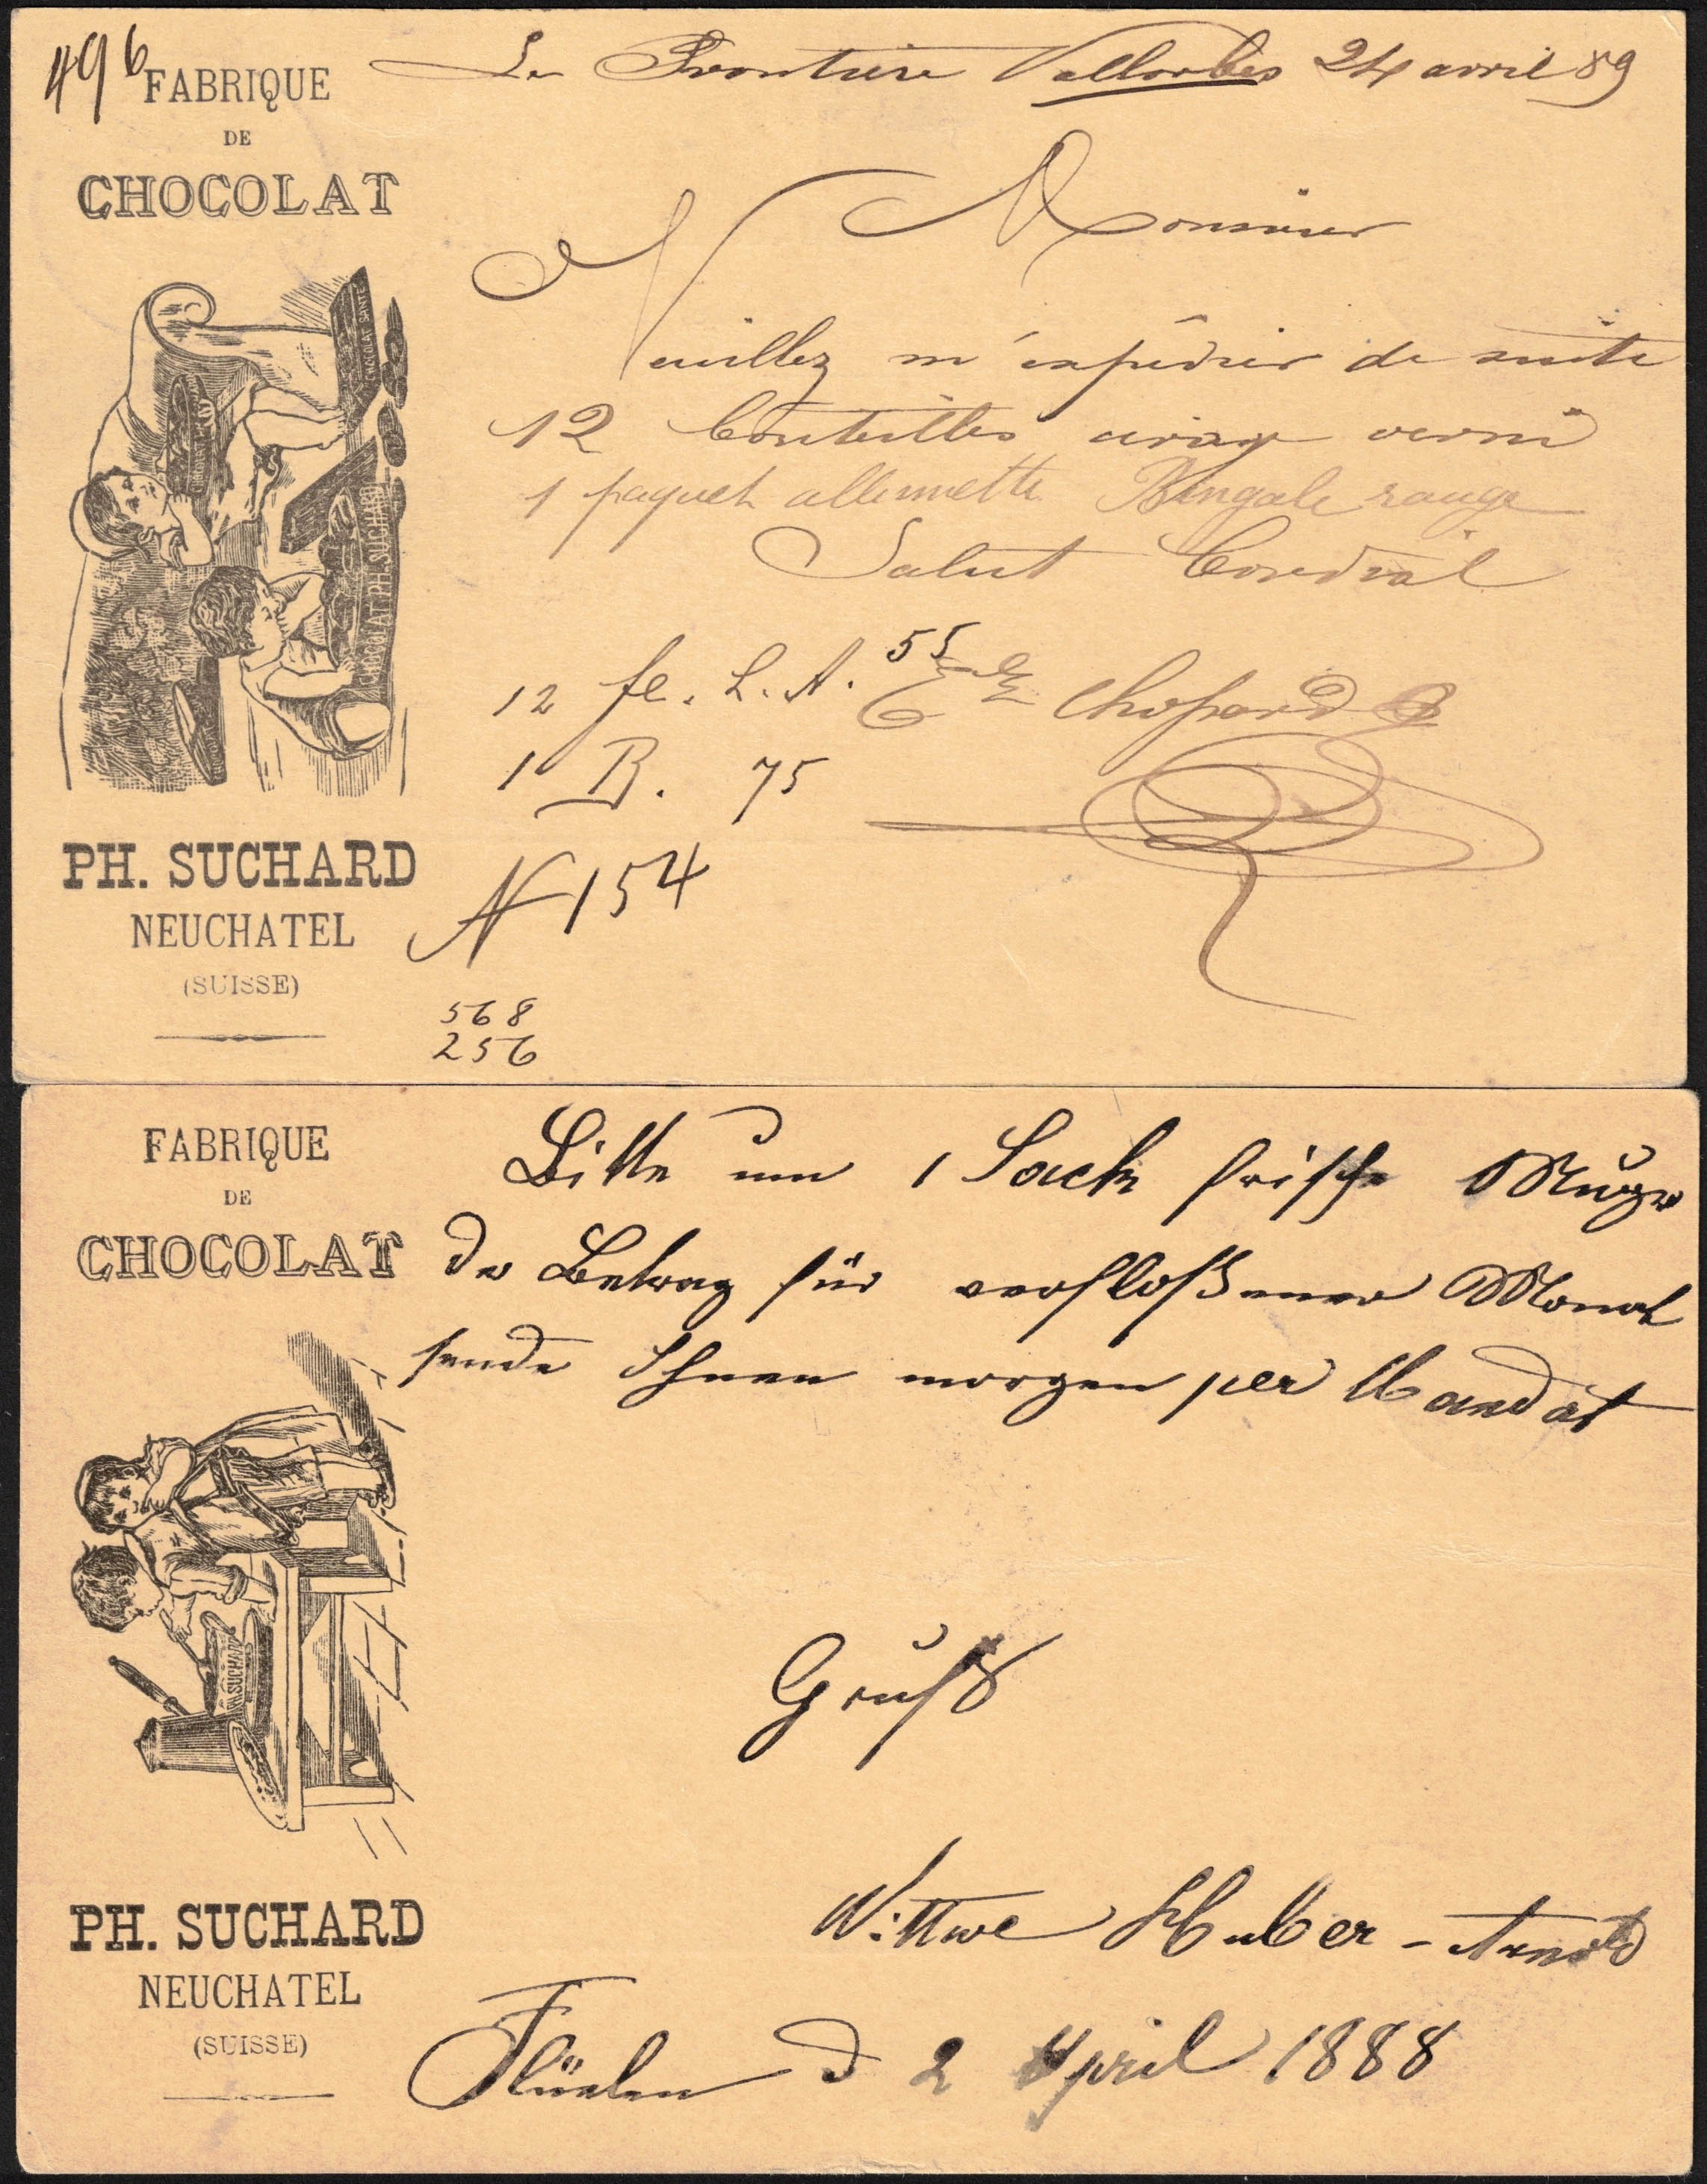 496
FABRIQUE
DE
CHOCOLAT
CHOCOLAT SANTÉ
CHOCOLAT PH. SUCHARD
PH. SUCHARD
NEUCHATEL
(SUISSE)
La Frontière Vallorbes 24 avril 89
Monsieur
Veuillez m'expédier de suite
12 bouteilles cirage verni
1 paquet allumette Bengale rouge
Salut Cordial
Chopard
12 fl. L. A. 55
1 B. 75
N 154
568
256
FABRIQUE
DE
CHOCOLAT
PH. SUCHARD
PH. SUCHARD
NEUCHATEL
(SUISSE)
Bitte um 1 Sack frische
Betrag für verfloßenen Monat
sende Ihnen morgen per Mandat
Gruß
Wittwe Huber-Arnold
Flüelen d 2 April 1888